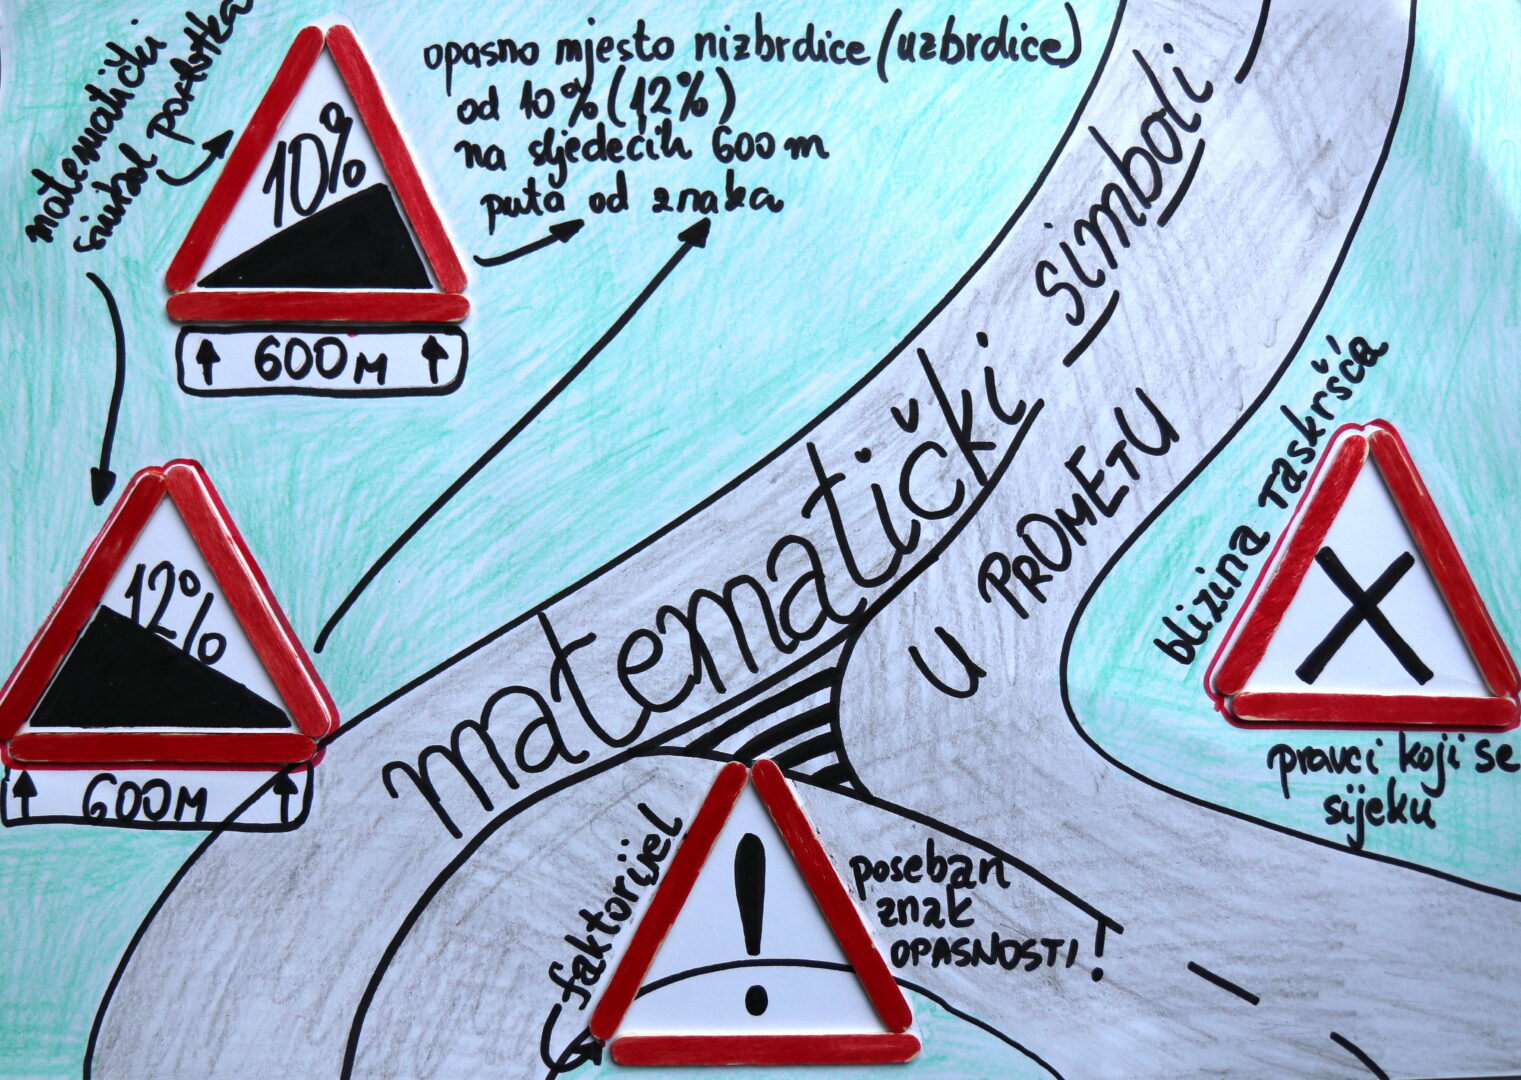 matematički
simbol postotka
10%
600 M
opasno mjesto nizbrdice (uzbrdice)
od 10% (12%)
na sljedecih 600 m
puta od znaka
matematički simboli
u PrOMETU
12%
600 M
blizina raskršća
pravci koji se
sijeku
faktorijel
!
poseban
znak
OPASNOSTI!